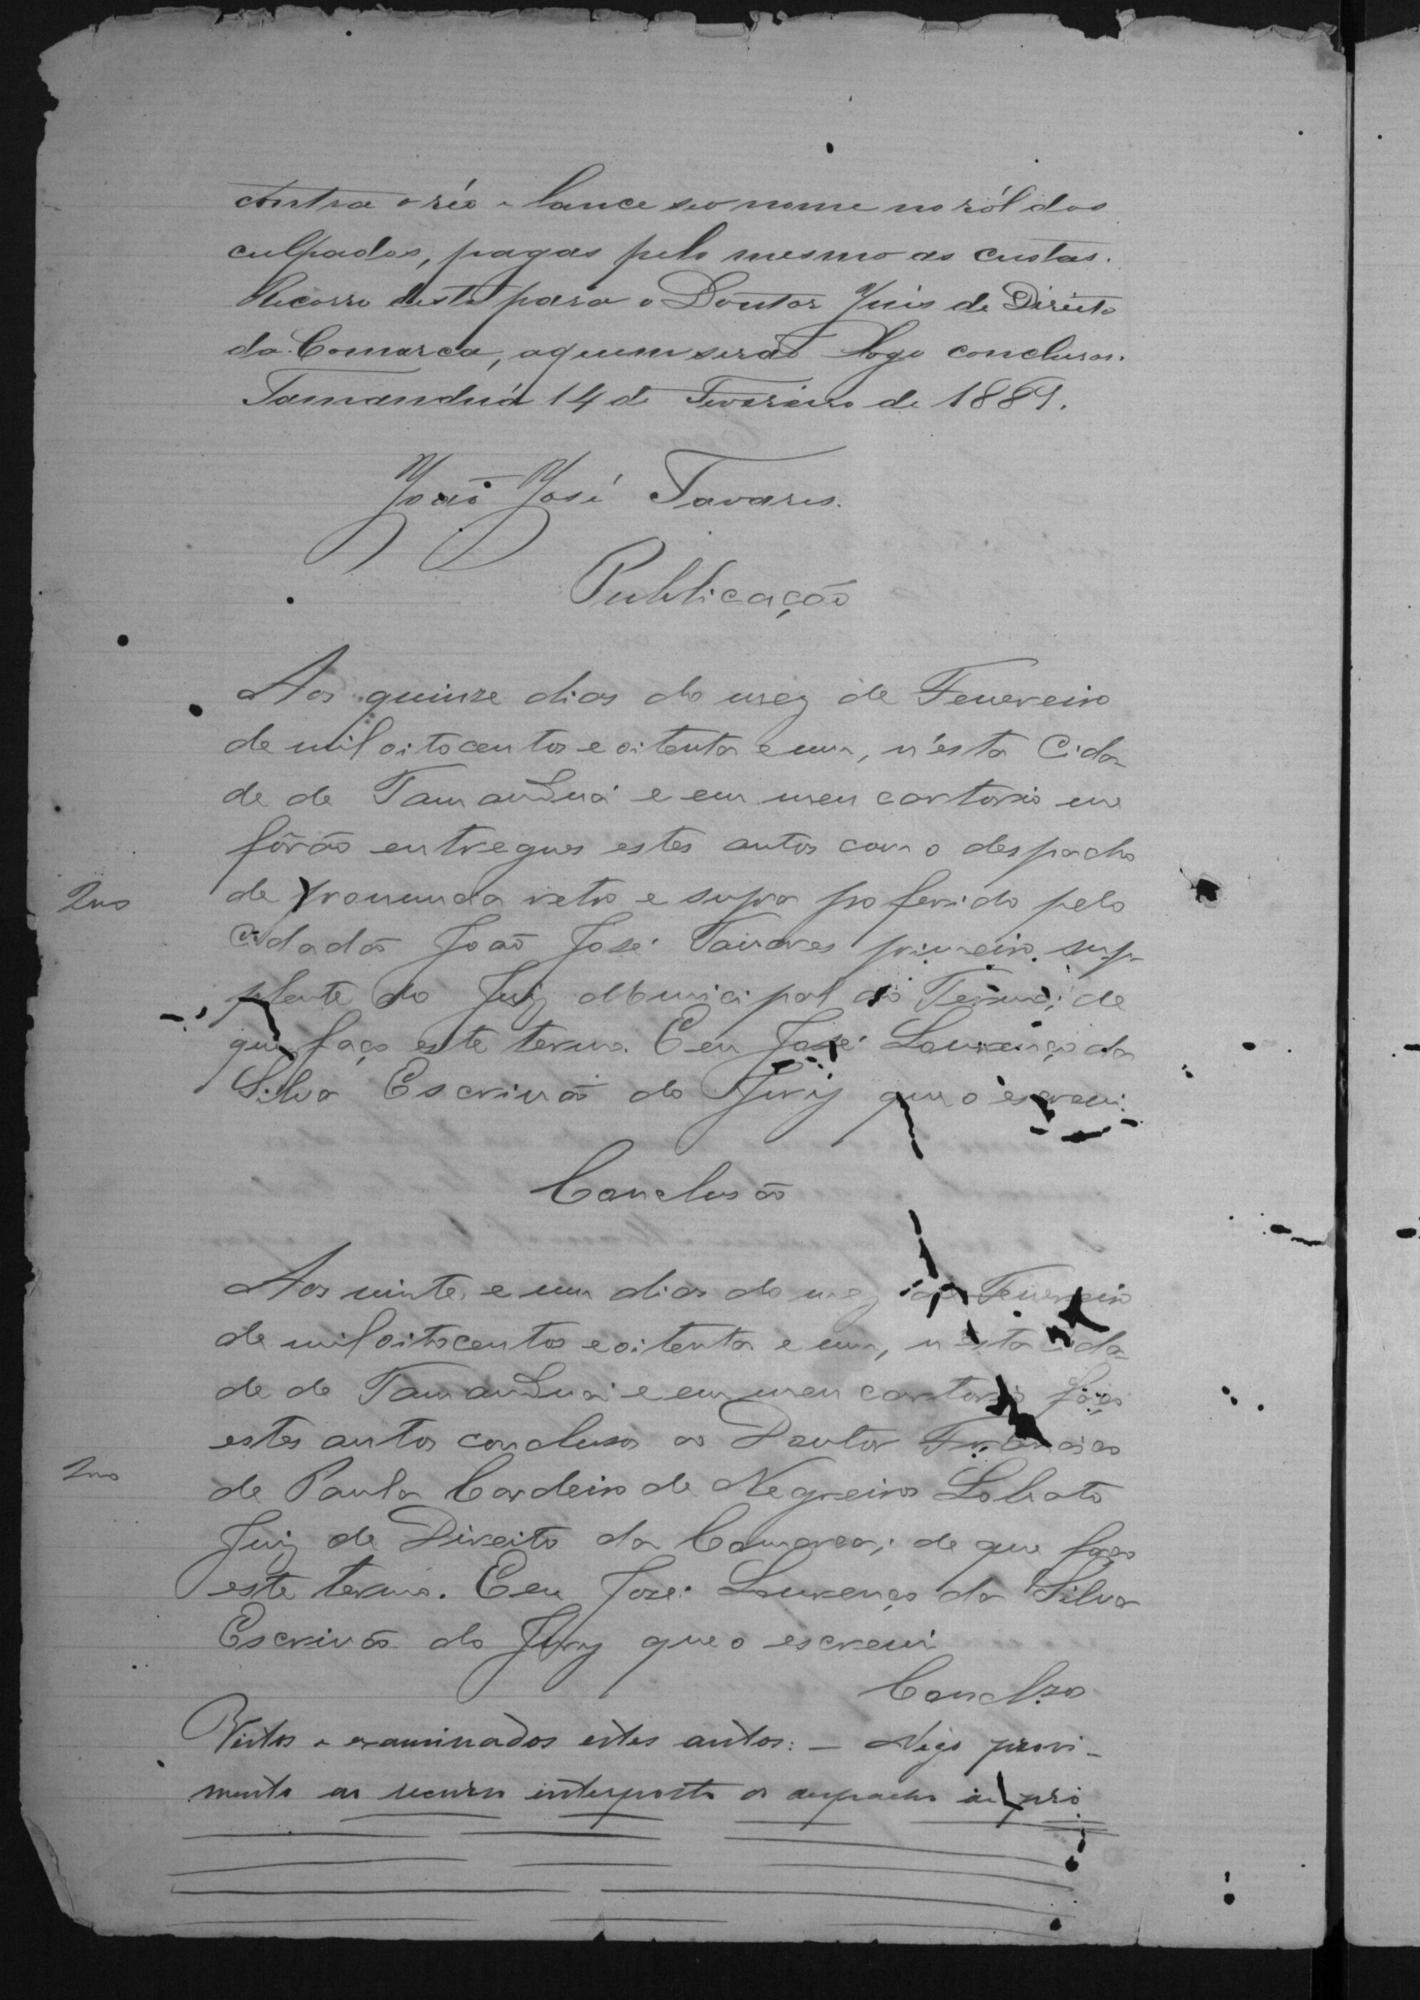 contra o réo e lance seo nome no ról dos
culpados, pagas pelo mesmo as custas.
Recorro deste para o Doutor Juis de Direito
da Comarca, a quem serão logo conclusos.
Tamanduá 14 de Fevereiro de 1881.
João José Tavares.
Publicação
Aos quinze dias do mez de Fevereiro
de mil oitocentos e oitenta e um, n'esta Cida-
de de Tamanduá e em meu cartorio me
fôrão entregues estes autos com o despacho
de pronuncia retro e supra proferido pelo
Cidadão João José Tavares primeiro sup-
plente do Juiz Municipal do Termo; de
que faço este termo. E eu José Lourenço da
Silva Escrivão do Jury que o escrevi.
Conclusão
Aos vinte e um dias do mez de Fevereiro
de mil oitocentos e oitenta e um, n'esta Cida-
de de Tamanduá e em meu cartorio faço
estes autos conclusos ao Doutor Francisco
de Paula Cordeiro de Negreiros Lobato
Juiz de Direito da Comarca; de que faço
este termo. E eu José Lourenço da Silva
Escrivão do Jury que o escrevi
Conclsos
Vistos e examinados estes autos: — Nego provi-
mento ao recurso interposto do despacho de pro